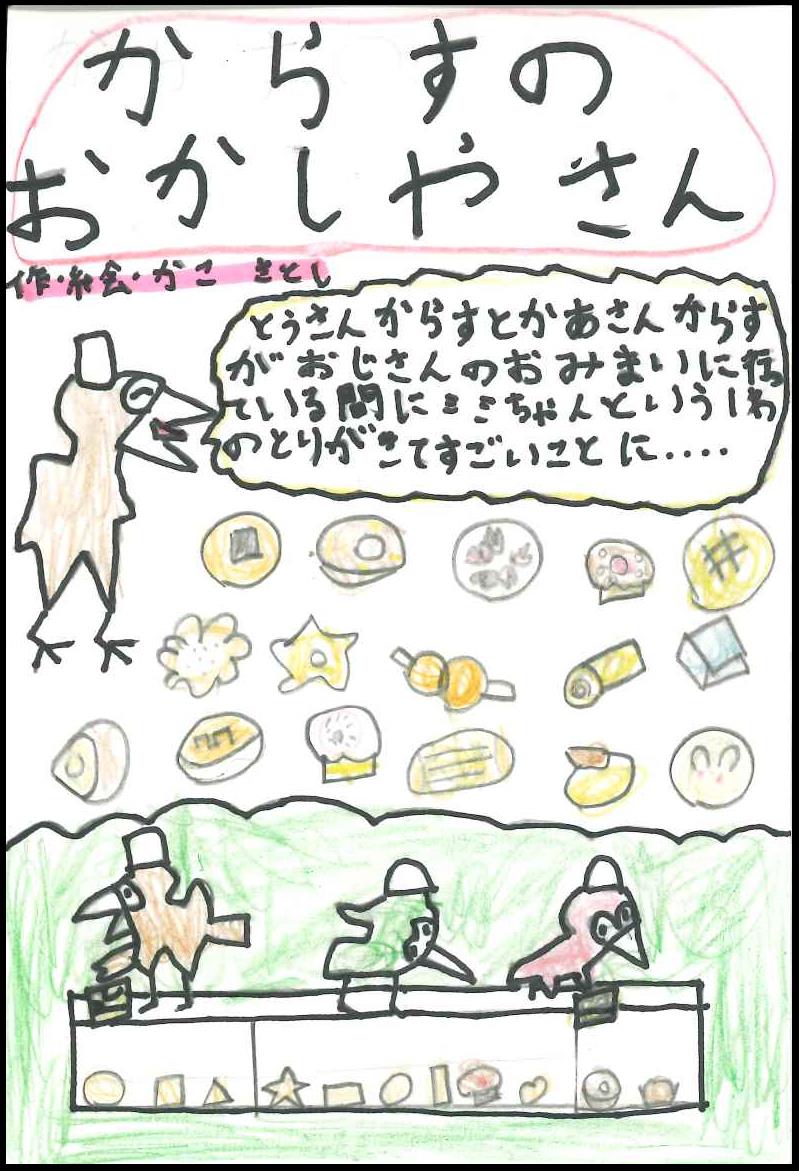 からすの
おかしやさん
作・絵・かこ さとし
とうさんからすとかあさんからす
がおじさんのおみまいに行っ
ている間にミミちゃんという1わ
のとりがきてすごいことに....